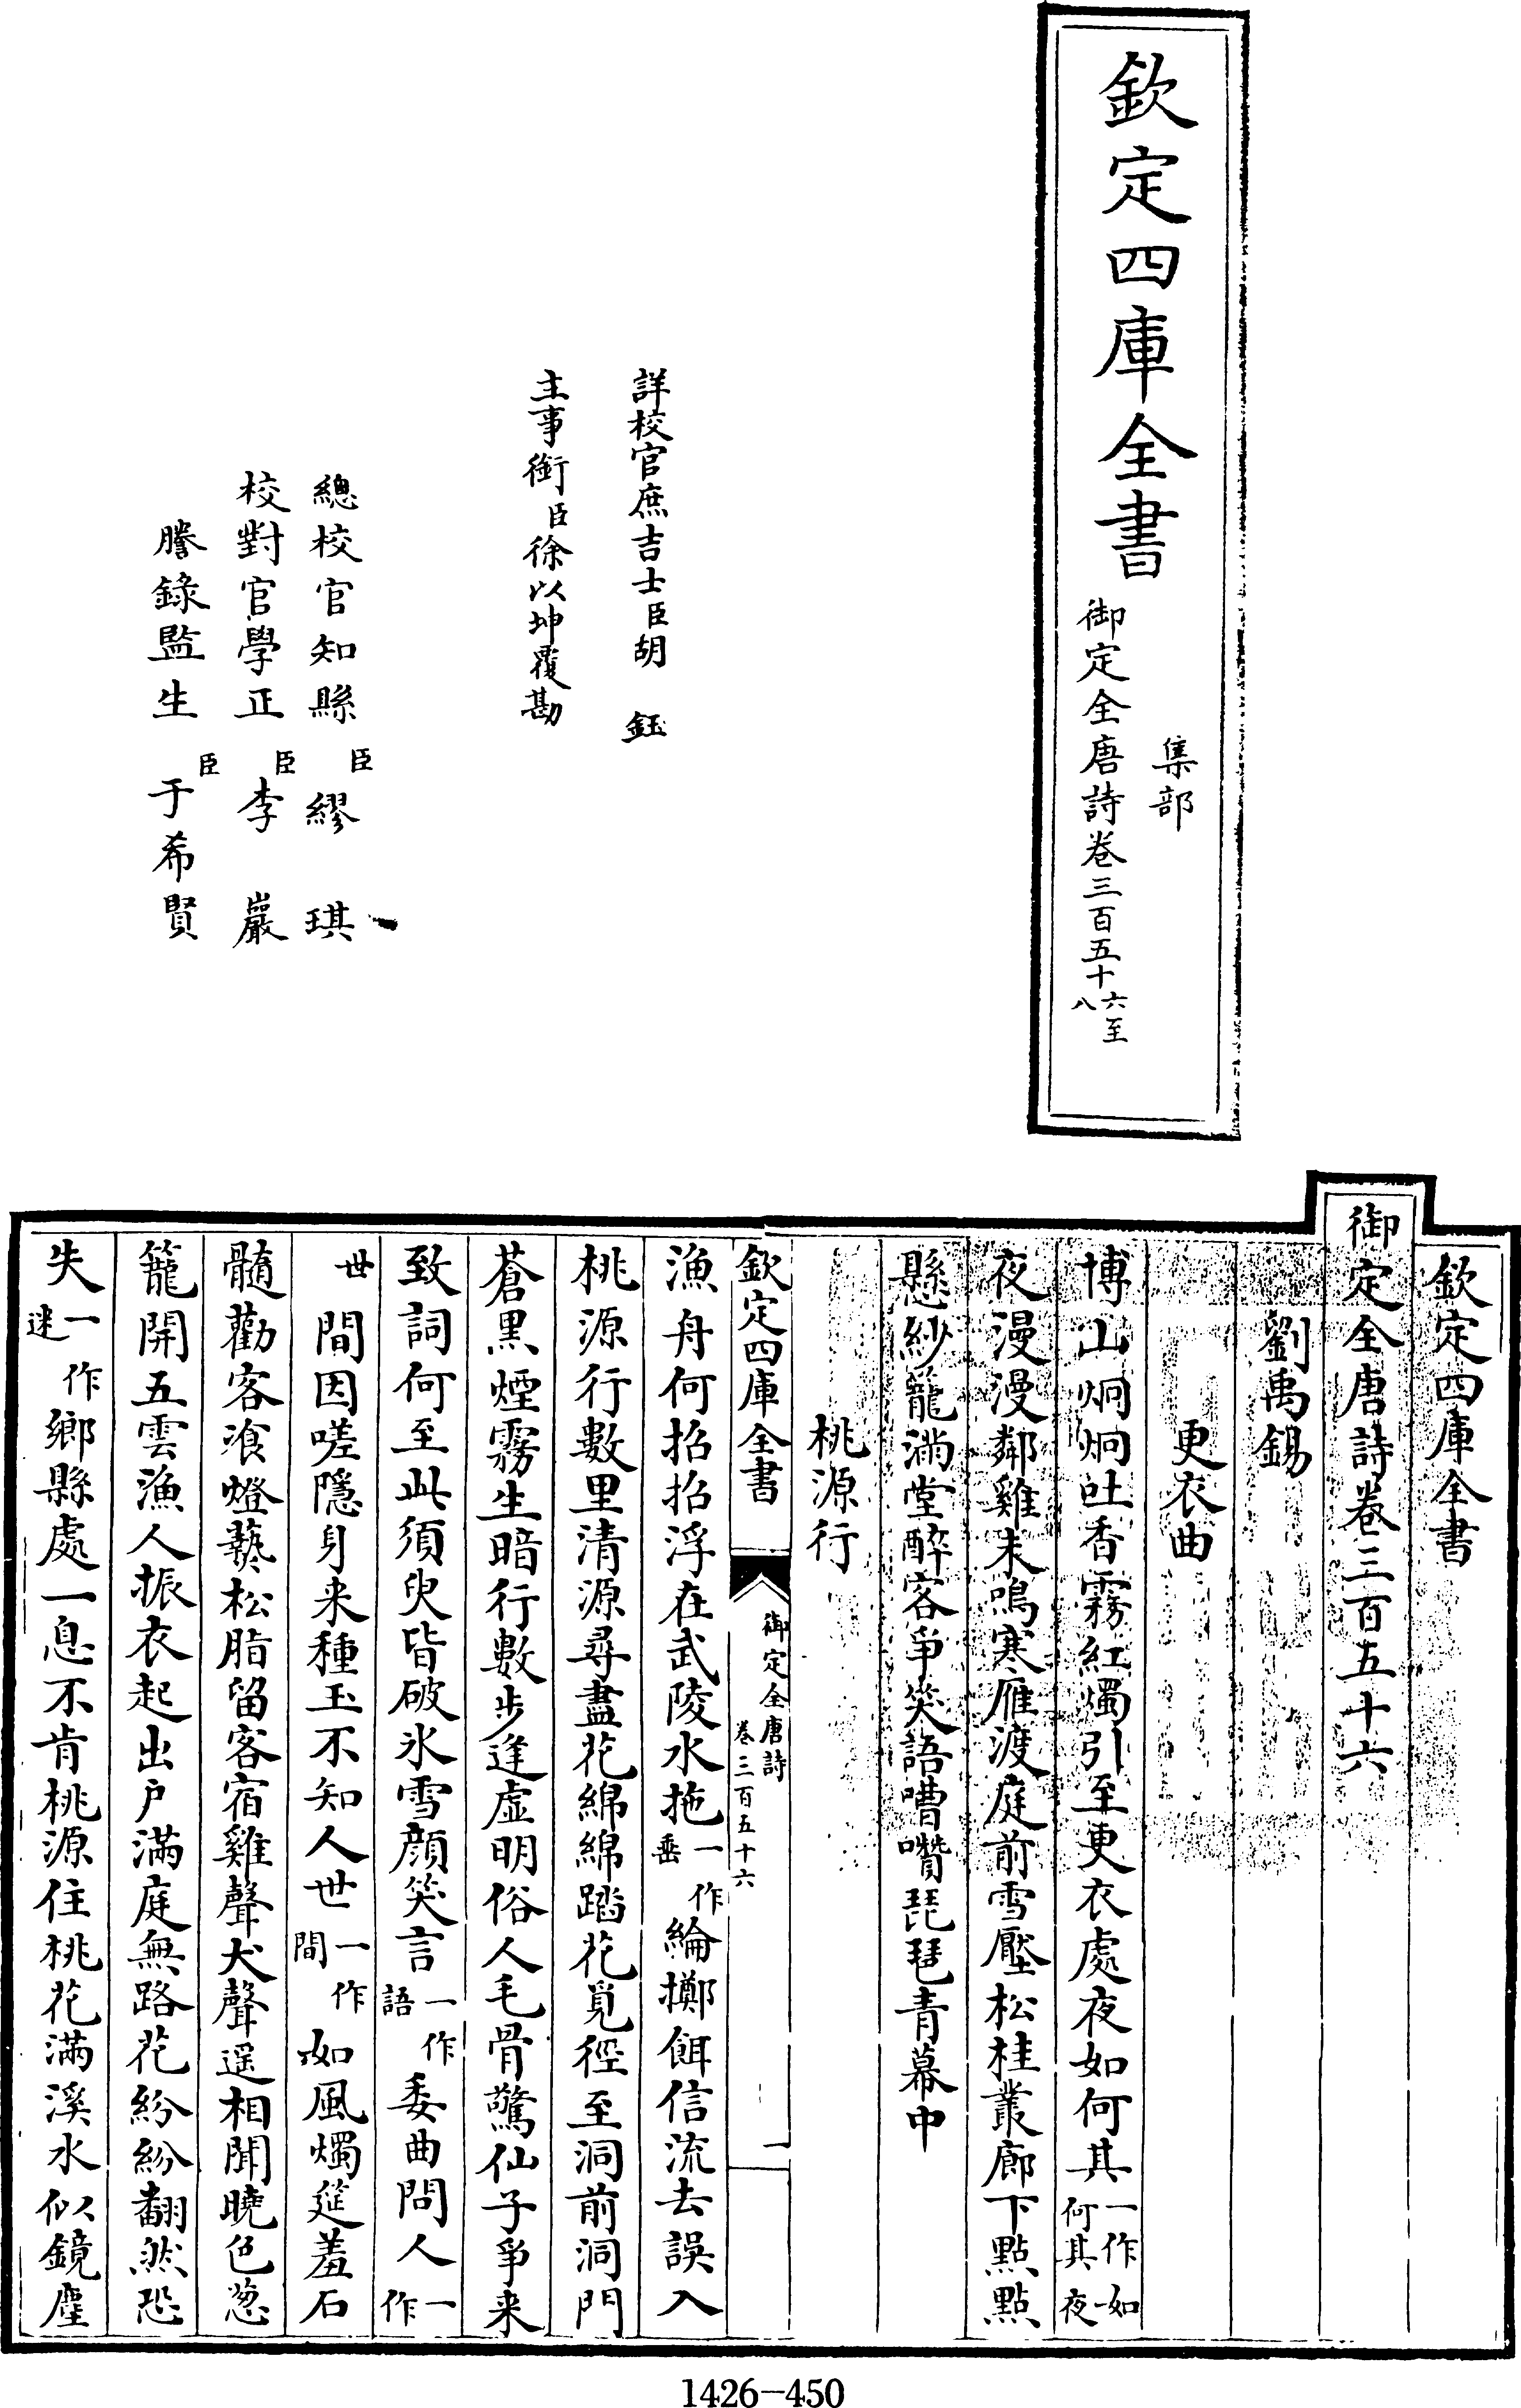 欽定四庫全書
集部
御定全唐詩卷三百五十六至八
詳校官庶吉士臣胡 鈺
主事銜臣徐以坤覆勘
總校官知縣臣繆 琪
校對官學正臣李 巖
謄錄監生臣于希賢
欽定四庫全書
御定全唐詩卷三百五十六
劉禹錫
更衣曲
博山炯炯吐香霧紅燭引至更衣處夜如何其一作如何其夜
夜漫漫鄰雞未鳴寒雁渡庭前雪壓松桂叢廊下點點
懸紗籠滿堂醉客爭笑語嘈囋琵琶青幕中
桃源行
欽定四庫全書
御定全唐詩
卷三百五十六
一
漁舟何招招浮在武陵水拖一作垂綸擲餌信流去誤入
桃源行數里清源尋盡花綿綿踏花覓徑至洞前洞門
蒼黑煙霧生暗行數步逢虛明俗人毛骨驚仙子爭来
致詞何至此須臾皆破氷雪顏笑言一作語委曲問人一作
世間因嗟隱身来種玉不知人世一作間如風燭筵羞石
髓勸客飡燈爇松脂留客宿雞聲犬聲遥相聞曉色葱
籠開五雲漁人振衣起出户滿庭無路花紛紛翻然恐
失一作迷鄉縣處一息不肯桃源住桃花滿溪水似鏡塵
1426-450